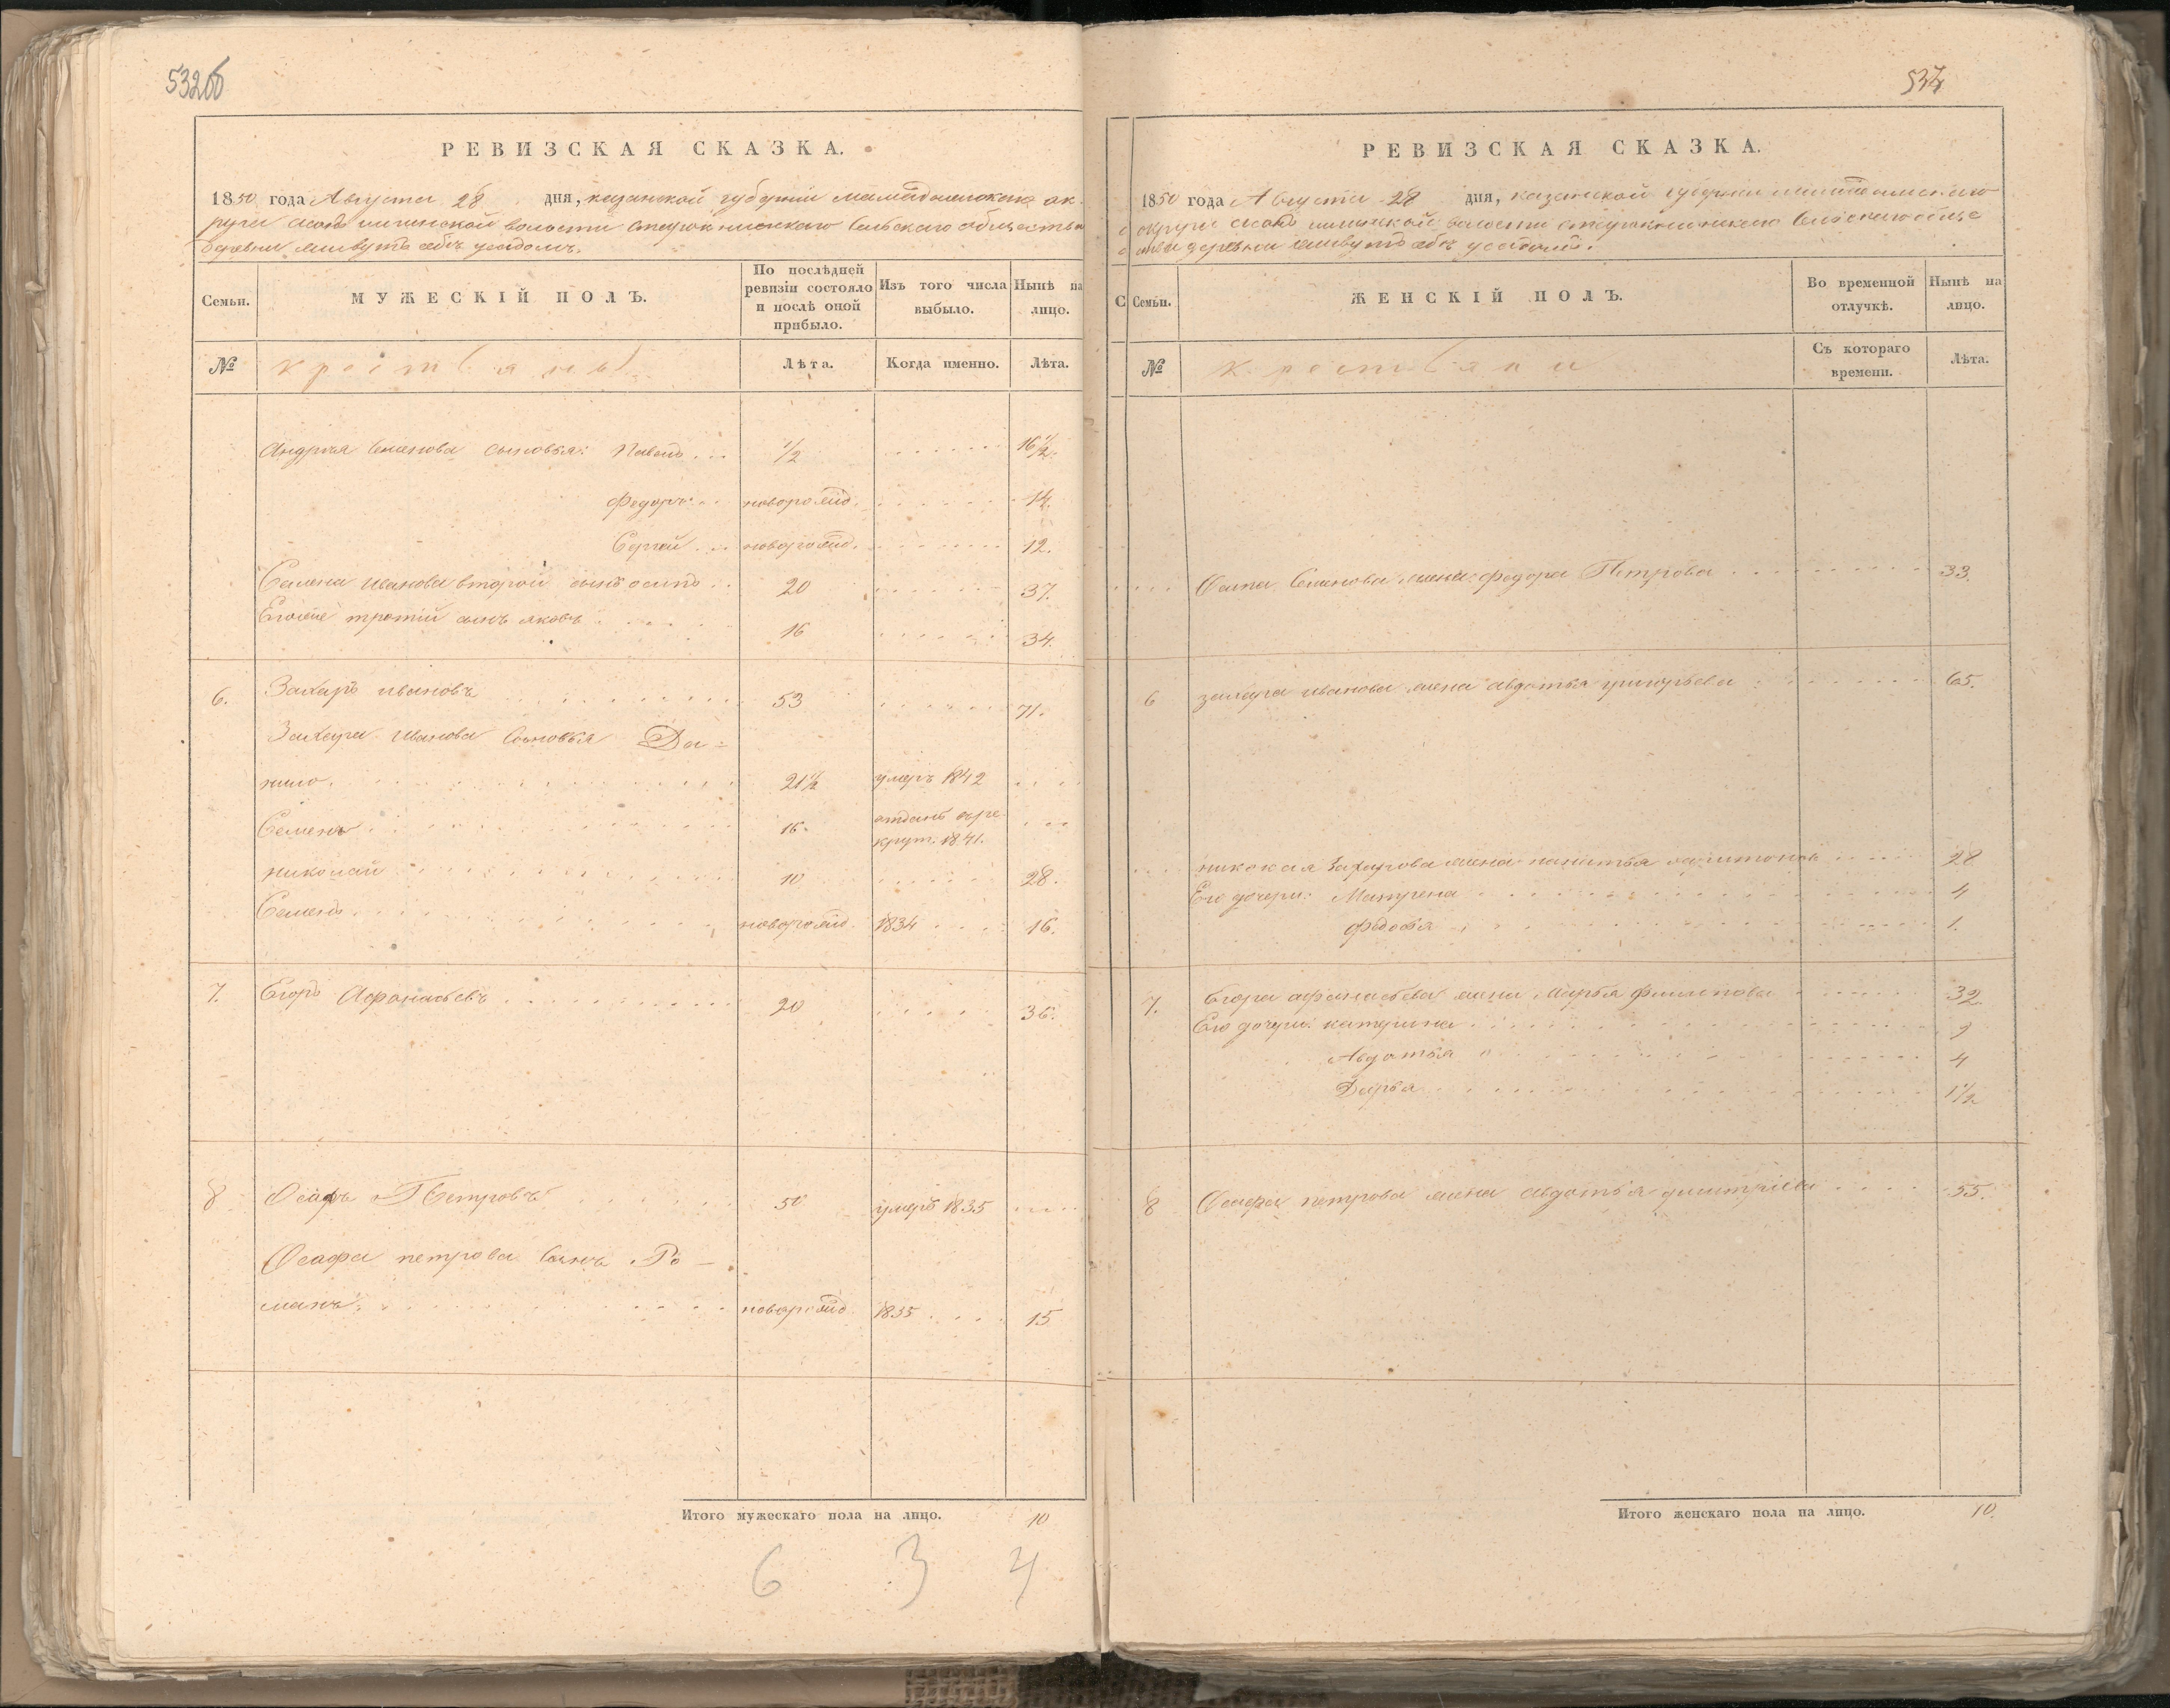 532об
534
РЕВИЗСКАЯ СКАЗКА.
1850 года Августа 28 дня, казанской губерніи мамадышскаго ок-
руга волости сельскаго общества
деревни
Семьи.
МУЖЕСКІЙ ПОЛЪ.
По послѣдней ревизіи состояло и послѣ оной прибыло.
Изъ того числа выбыло.
Нынѣ на лицо.
№
крестьяны
Лѣта.
Когда именно.
Лѣта.
Андрея Семенова сыновья: Павелъ ... 1/2 16 1/2.
Федоръ новорожд. 14.
Сергей новорожд. 12.
Семена Иванова второй сынъ осипъ 20 37.
Егоже третій сынъ яковъ 16 34.
6. Захаръ ивановъ 53 71.
Захара Иванова Сыновья Да-
нило. 21 1/2 умеръ 1842
Семенъ 16. отданъ в ре-
крут. 1841.
николай 10 28.
Семенъ новорожд. 1834 16.
7. Егоръ Афонасьевъ 20 36.
8 Осафъ Петровъ 50 умеръ 1835
Осафа петрова Сынъ Ро-
манъ. новорожд. 1835 15
Итого мужескаго пола на лицо. 10
6 3 4
РЕВИЗСКАЯ СКАЗКА.
1850 года Августа 28 дня, казанской губерніи мамадышскаго
округа волости сельскаго обще-
ства деревни
С
Семьи.
ЖЕНСКІЙ ПОЛЪ.
Во временной отлучкѣ.
Нынѣ на лицо.
№
крестьяни
Съ котораго времени.
Лѣта.
Осипа Семенова жена федора Петрова 33.
6 захара иванова жена авдотья григорьева 65.
николая Захарова жена 28
Его дочери: Матрена 4
Федосья 1.
7. Егора афанасьева жена Марья Филипова 32.
Его дочери: катерина 9
Авдотья 4
Дарья 1 1/2
8 Осафа петрова жена авдотья димитріева 55.
Итого женскаго пола на лицо. 10.